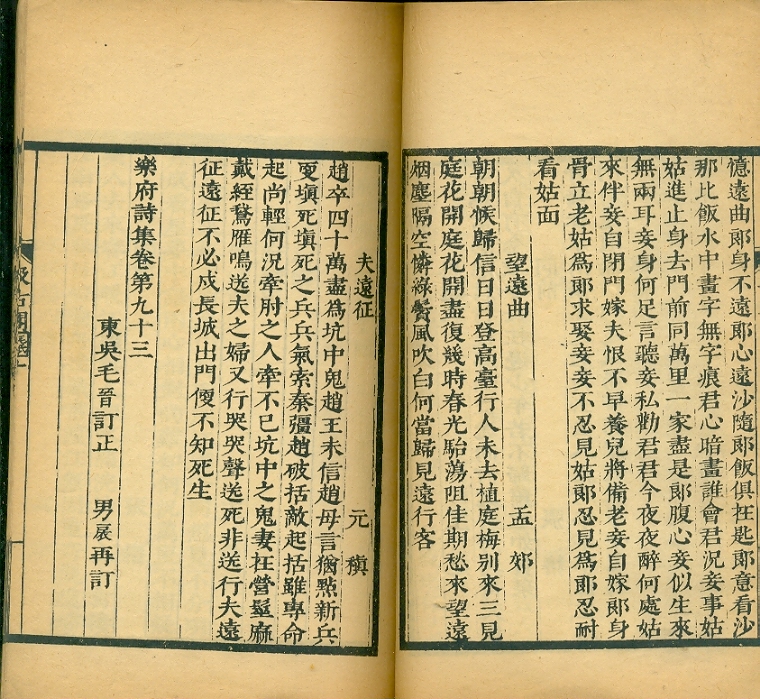 憶遠曲郎身不遠郎心遠沙隨郎飯俱在匙郎意看沙
那比飯水中畫字無字痕君心暗畫誰會君況妾事姑
姑進止身去門前同萬里一家盡是郎腹心妾似生來
無兩耳妾身何足言聽妾私勸君君今夜夜醉何處姑
來伴妾自閉門嫁夫恨不早養兒將備老妾自嫁郎身
骨立老姑爲郎求娶妾妾不忍見姑郎忍見爲郎忍耐
看姑面
望遠曲 孟郊
朝朝候歸信日日登高臺行人未去植庭梅別來三見
庭花開庭花開盡復幾時春光駘蕩阻佳期愁來望遠
烟塵隔空憐綠鬢風吹白何當歸見遠行客
夫遠征 元稹
趙卒四十萬盡爲坑中鬼趙王未信趙母言猶點新兵
更塡死塡死之兵兵氣索秦彊趙破括敵起括雖專命
起尚輕何況牽肘之人牽不已坑中之鬼妻在營髽麻
戴絰鵞雁鳴送夫之婦又行哭哭聲送死非送行夫遠
征遠征不必戍長城出門便不知死生
樂府詩集卷第九十三
東吳毛晉訂正 男扆再訂